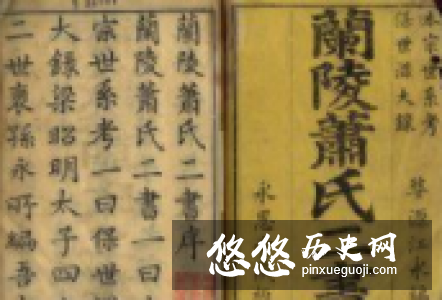 宗世系考
大錄
蘭陵蕭氏二
永思
蘭陵蕭氏二書序
蘭陵蕭氏二書一曰
宗世系考一曰保世
大錄梁昭明太子四
二世裔孫永所編吾
悠悠历史网
pinxueguoji.com